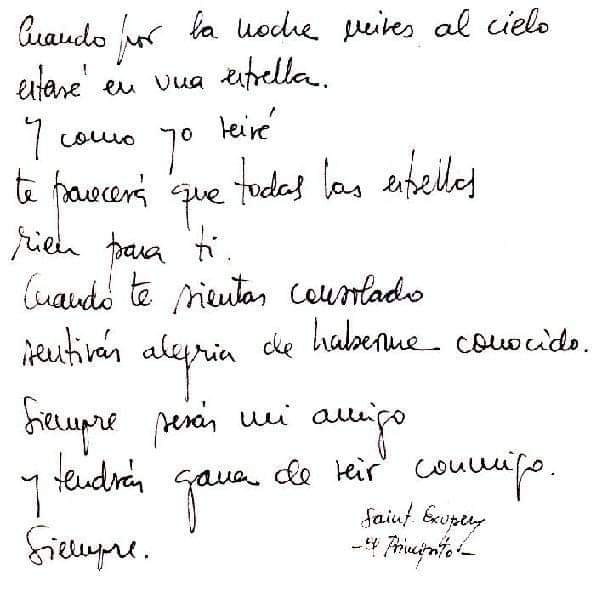 Cuando por la noche mires al cielo
estaré en una estrella.
Y como yo reiré
te parecerá que todas las estrellas
rien para ti.
Cuando te sientas consolado
sentirás alegria de haberme conocido.
Siempre serás mi amigo
y tendrás ganas de reir conmigo.
Siempre.
Saint. Exupery
- El Principito -